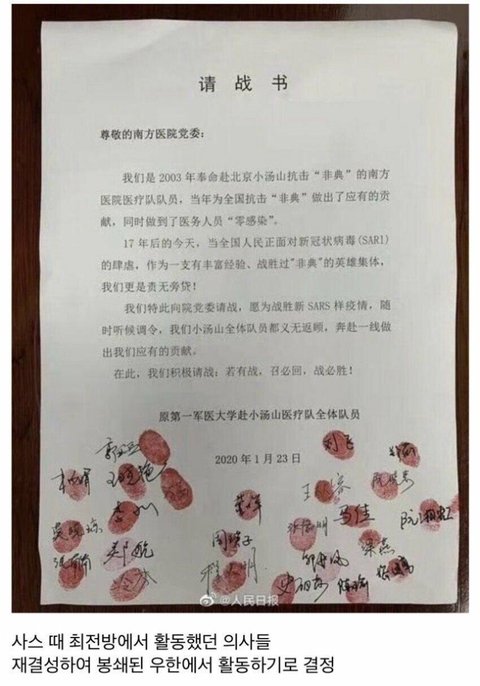 请 战 书
尊敬的南方医院党委：
我们是 2003 年奉命赴北京小汤山抗击“非典”的南方
医院医疗队队员，当年为全国抗击“非典”做出了应有的贡
献，同时做到了医务人员“零感染”。
17 年后的今天，当全国人民正面对新冠状病毒(SARI)
的肆虐，作为一支有丰富经验、战胜过"非典"的英雄集体，
我们更是责无旁贷！
我们特此向院党委请战，愿为战胜新 SARS 样疫情，随
时听候调令，我们小汤山全体队员都义无返顾，奔赴一线做
出我们应有的贡献。
在此，我们积极请战：若有战，召必回，战必胜！
原第一军医大学赴小汤山医疗队全体队员
2020 年 1 月 23 日
刘飞
马佳
梁燕
@人民日报
사스 때 최전방에서 활동했던 의사들
재결성하여 봉쇄된 우한에서 활동하기로 결정